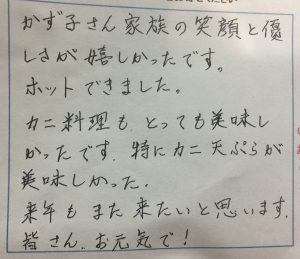 かず子さん家族の笑顔と優
しさが嬉しかったです。
ホットできました。
カニ料理も、とっても美味し
かったです。特にカニ天ぷらが
美味しかった。
来年もまた来たいと思います。
皆さん、お元気で!